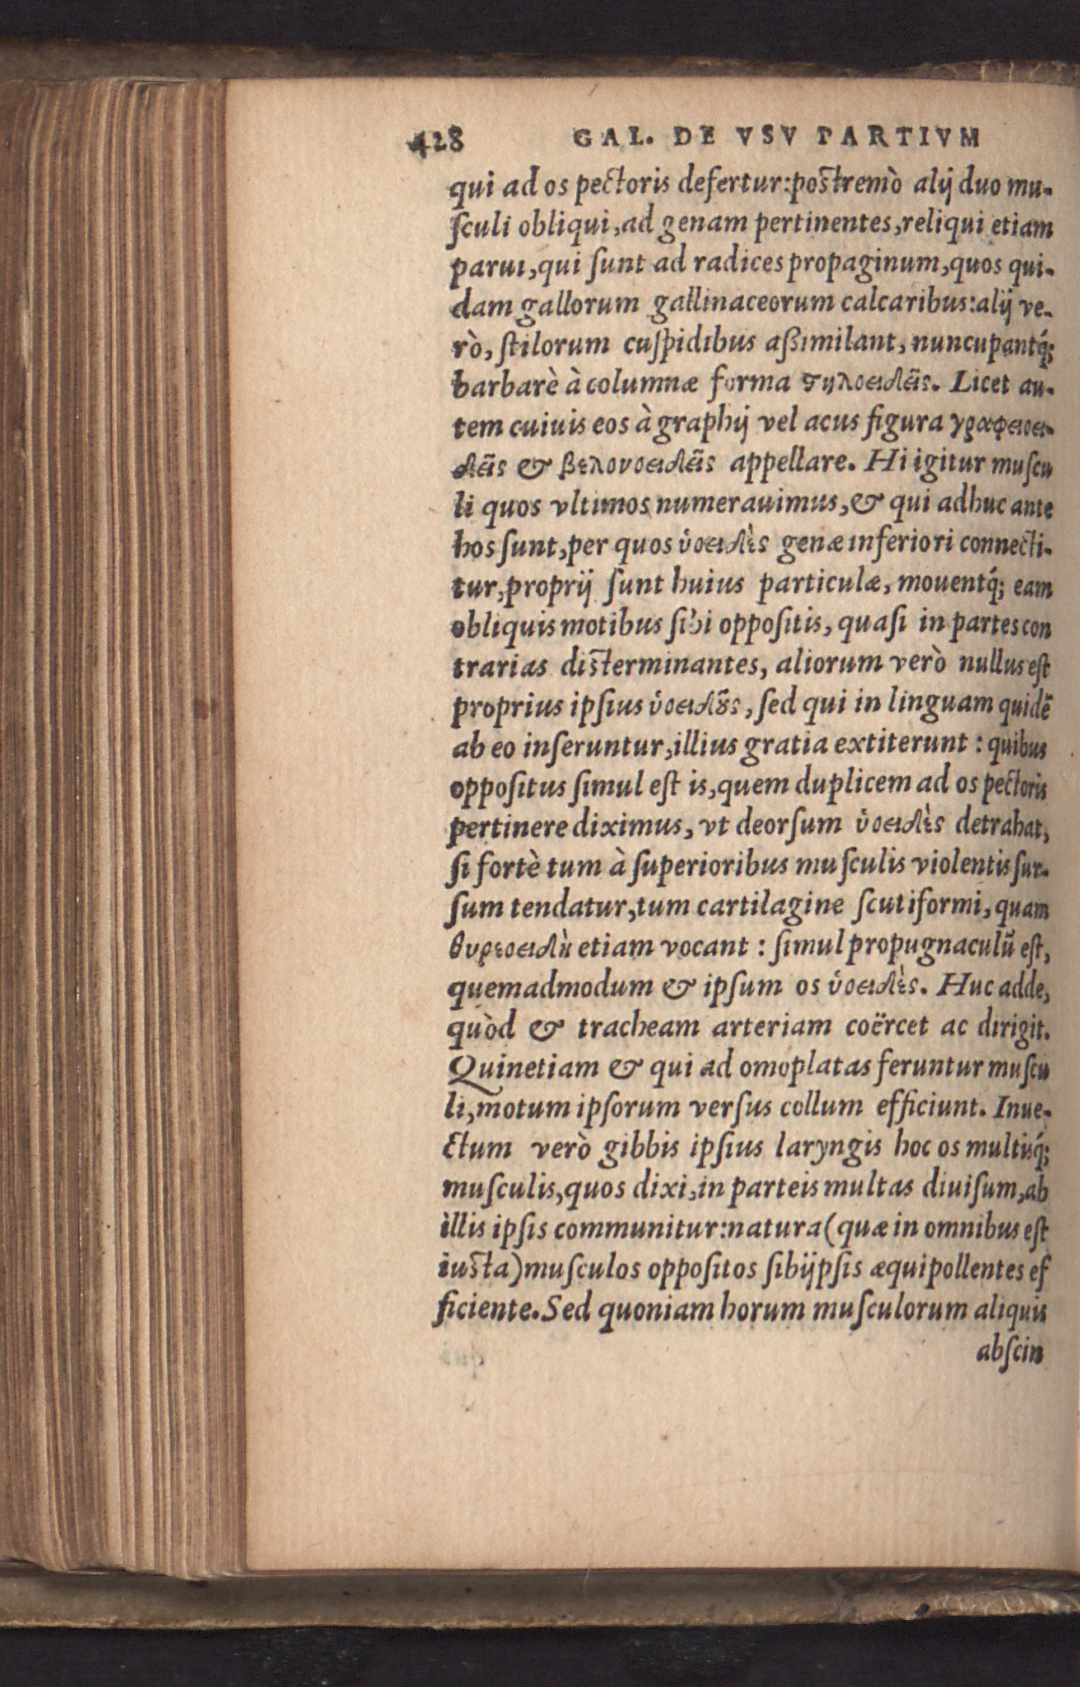 428 GAL. DE VSV PARTIVM
qui ad os pectoris defertur:postremò alij duo mu-
ſculi obliqui,ad genam pertinentes,reliqui etiam
parui,qui ſunt ad radices propaginum,quos qui-
dam gallorum gallinaceorum calcaribus:alij ve-
rò, ſtilorum cuſpidibus aßimilant, nuncupantq́;
barbarè à columnæ forma ϛηλοειδεῖς. Licet au-
tem cuiuis eos à graphij vel acus figura γραφειοει-
δεῖς & βελονοειδεῖς appellare. Hi igitur muſcu
li quos vltimos numerauimus,& qui adhuc ante
hos ſunt,per quos ὑοειδὲς genæ inferiori connecti-
tur,proprij ſunt huius particulæ, mouentq́; eam
obliquis motibus ſibi oppoſitis, quaſi in partes con
trarias disterminantes, aliorum verò nullus eſt
proprius ipſius ὑοειδοῦς, ſed qui in linguam quidē
ab eo inſeruntur,illius gratia extiterunt : quibus
oppoſitus ſimul eſt is,quem duplicem ad os pectoris
pertinere diximus, vt deorſum ὑοειδὲς detrahat,
ſi fortè tum à ſuperioribus muſculis violentis ſur-
ſum tendatur,tum cartilagine ſcutiformi, quam
θυρεοειδῆ etiam vocant : ſimul propugnaculū eſt,
quemadmodum & ipſum os ὑοειδὲς. Huc adde,
quòd & tracheam arteriam coërcet ac dirigit.
Quinetiam & qui ad omoplatas feruntur muſcu
li,motum ipſorum verſus collum efficiunt. Inue-
ctum verò gibbis ipſius laryngis hoc os multisq́;
muſculis,quos dixi,in parteis multas diuiſum,ab
illis ipſis communitur:natura(quæ in omnibus eſt
iusta)muſculos oppoſitos ſibijpſis æquipollentes ef
ficiente.Sed quoniam horum muſculorum aliquis
abſcin